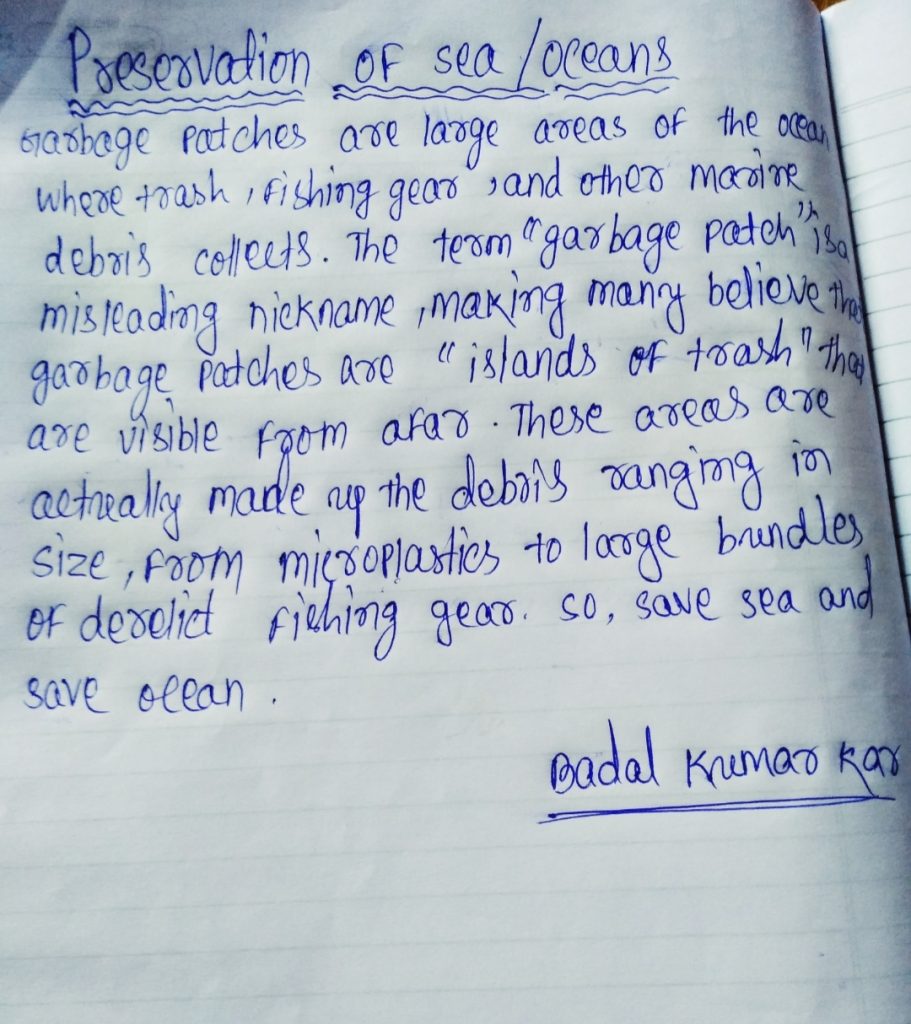 Preservation of sea/oceans
Garbage patches are large areas of the ocean
where trash, fishing gear, and other marine
debris collects. The term "garbage patch" is a
misleading nickname, making many believe that
garbage patches are "islands of trash" that
are visible from afar. These areas are
actually made up the debris ranging in
size, from microplastics to large bundles
of derelict fishing gear. so, save sea and
save ocean.
Badal Kumar Kar